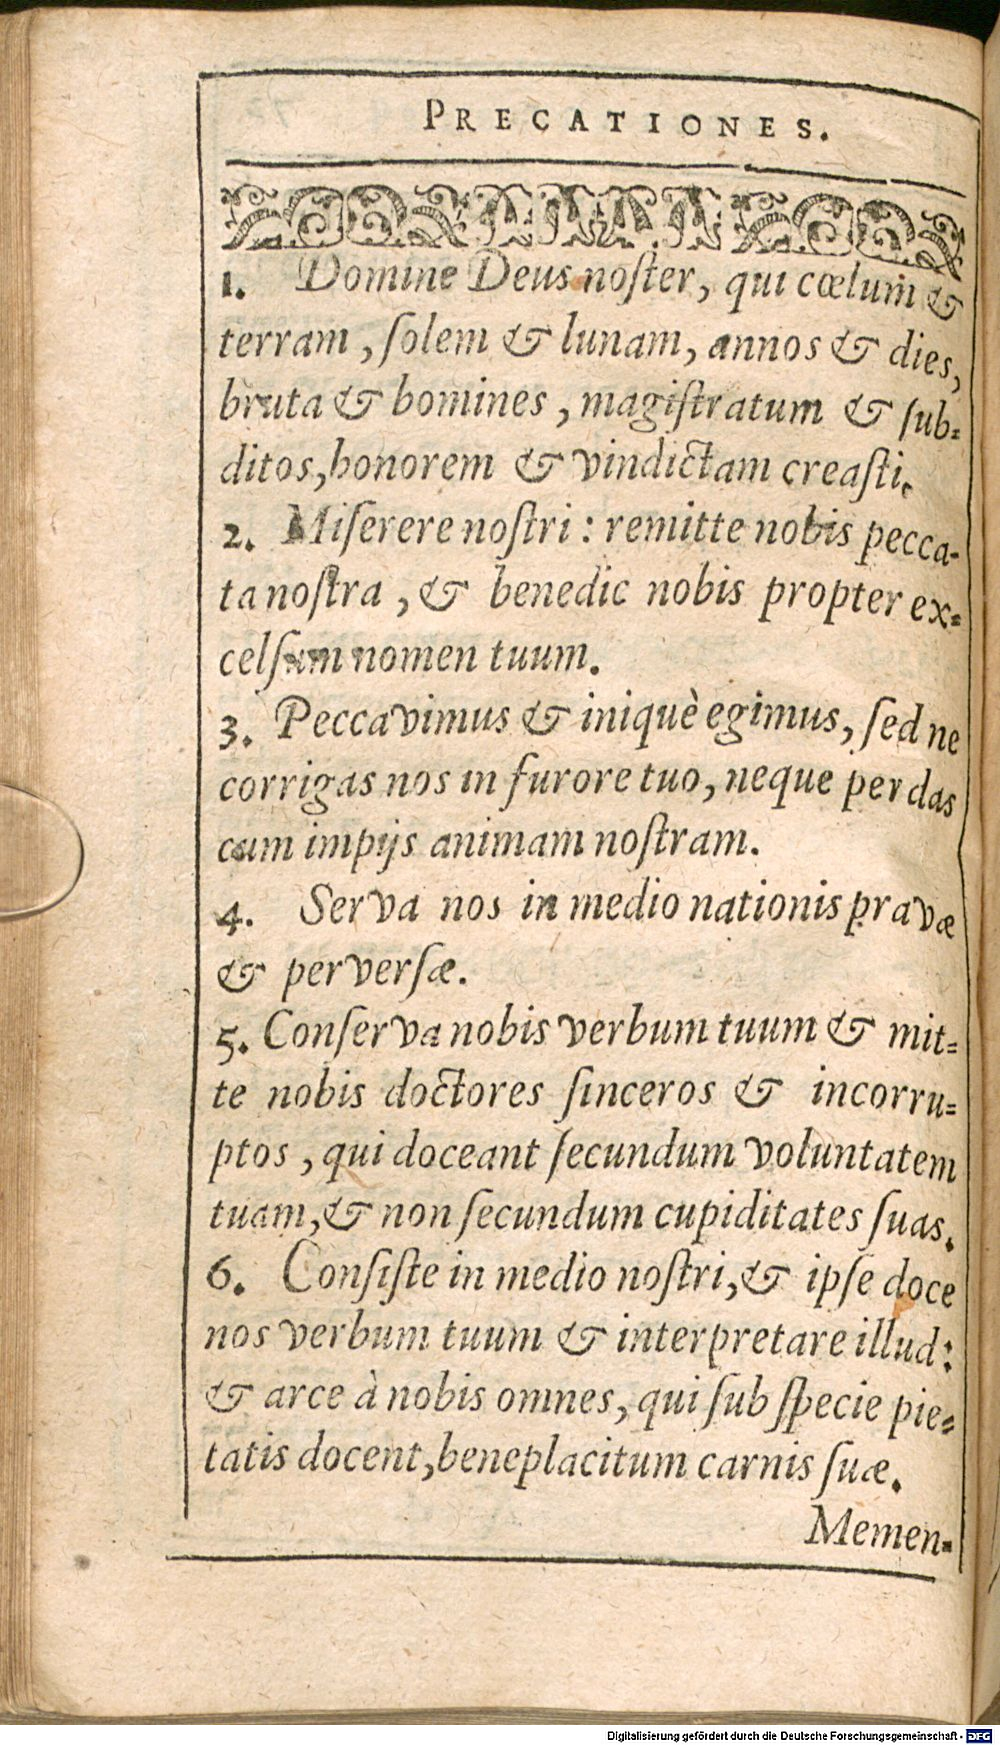 PRECATIONES.
1. Domine Deus noſter, qui cœlum &
terram, ſolem & lunam, annos & dies,
bruta & homines, magiſtratum & ſub-
ditos, honorem & vindictam creaſti.
2. Miſerere noſtri: remitte nobis pecca-
ta noſtra, & benedic nobis propter ex-
celſum nomen tuum.
3. Peccavimus & iniquè egimus, ſed ne
corrigas nos in furore tuo, neque perdas
cum impijs animam noſtram.
4. Serva nos in medio nationis pravæ
& perverſæ.
5. Conſerva nobis verbum tuum & mit-
te nobis doctores ſinceros & incorru-
ptos, qui doceant ſecundum voluntatem
tuam, & non ſecundum cupiditates ſuas.
6. Conſiſte in medio noſtri, & ipſe doce
nos verbum tuum & interpretare illud:
& arce à nobis omnes, qui ſub ſpecie pie-
tatis docent, beneplacitum carnis ſuæ.
Memen-
Digitalisierung gefördert durch die Deutsche Forschungsgemeinschaft - DFG